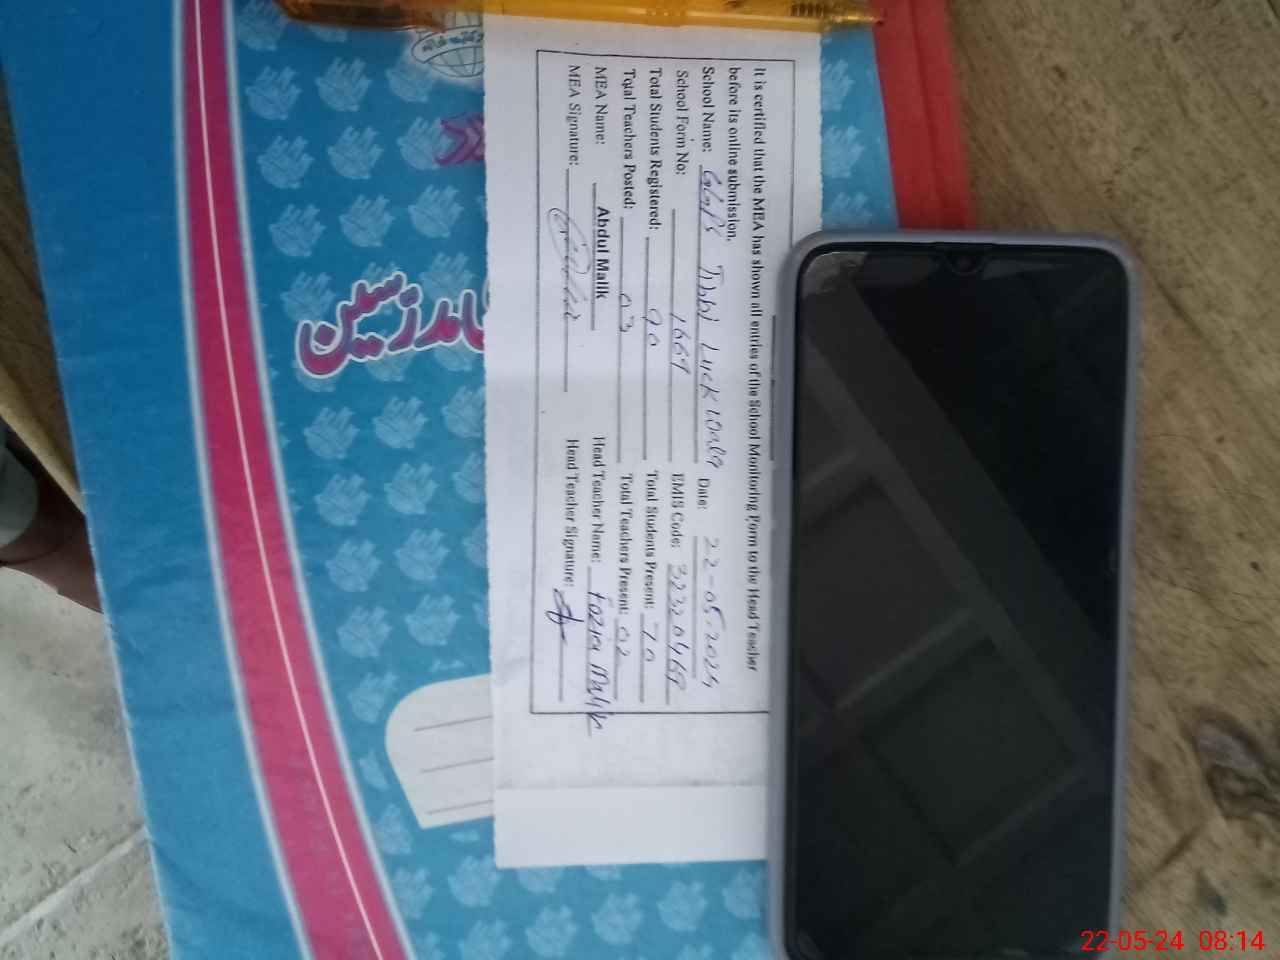 It is certified that the MEA has shown all entries of the School Monitoring Form to the Head Teacher
before its online submission.
School Name: GGPS Tibbi Luck wala Date: 22-05-2024
School Form No: 1669 EMIS Code:
Total Students Registered: 90 Total Students Present: 70
Total Teachers Posted: 03 Total Teachers Present: 02
MEA Name: Abdul Malik Head Teacher Name: Fozia Malik
MEA Signature: Head Teacher Signature:
22-05-24 08:14